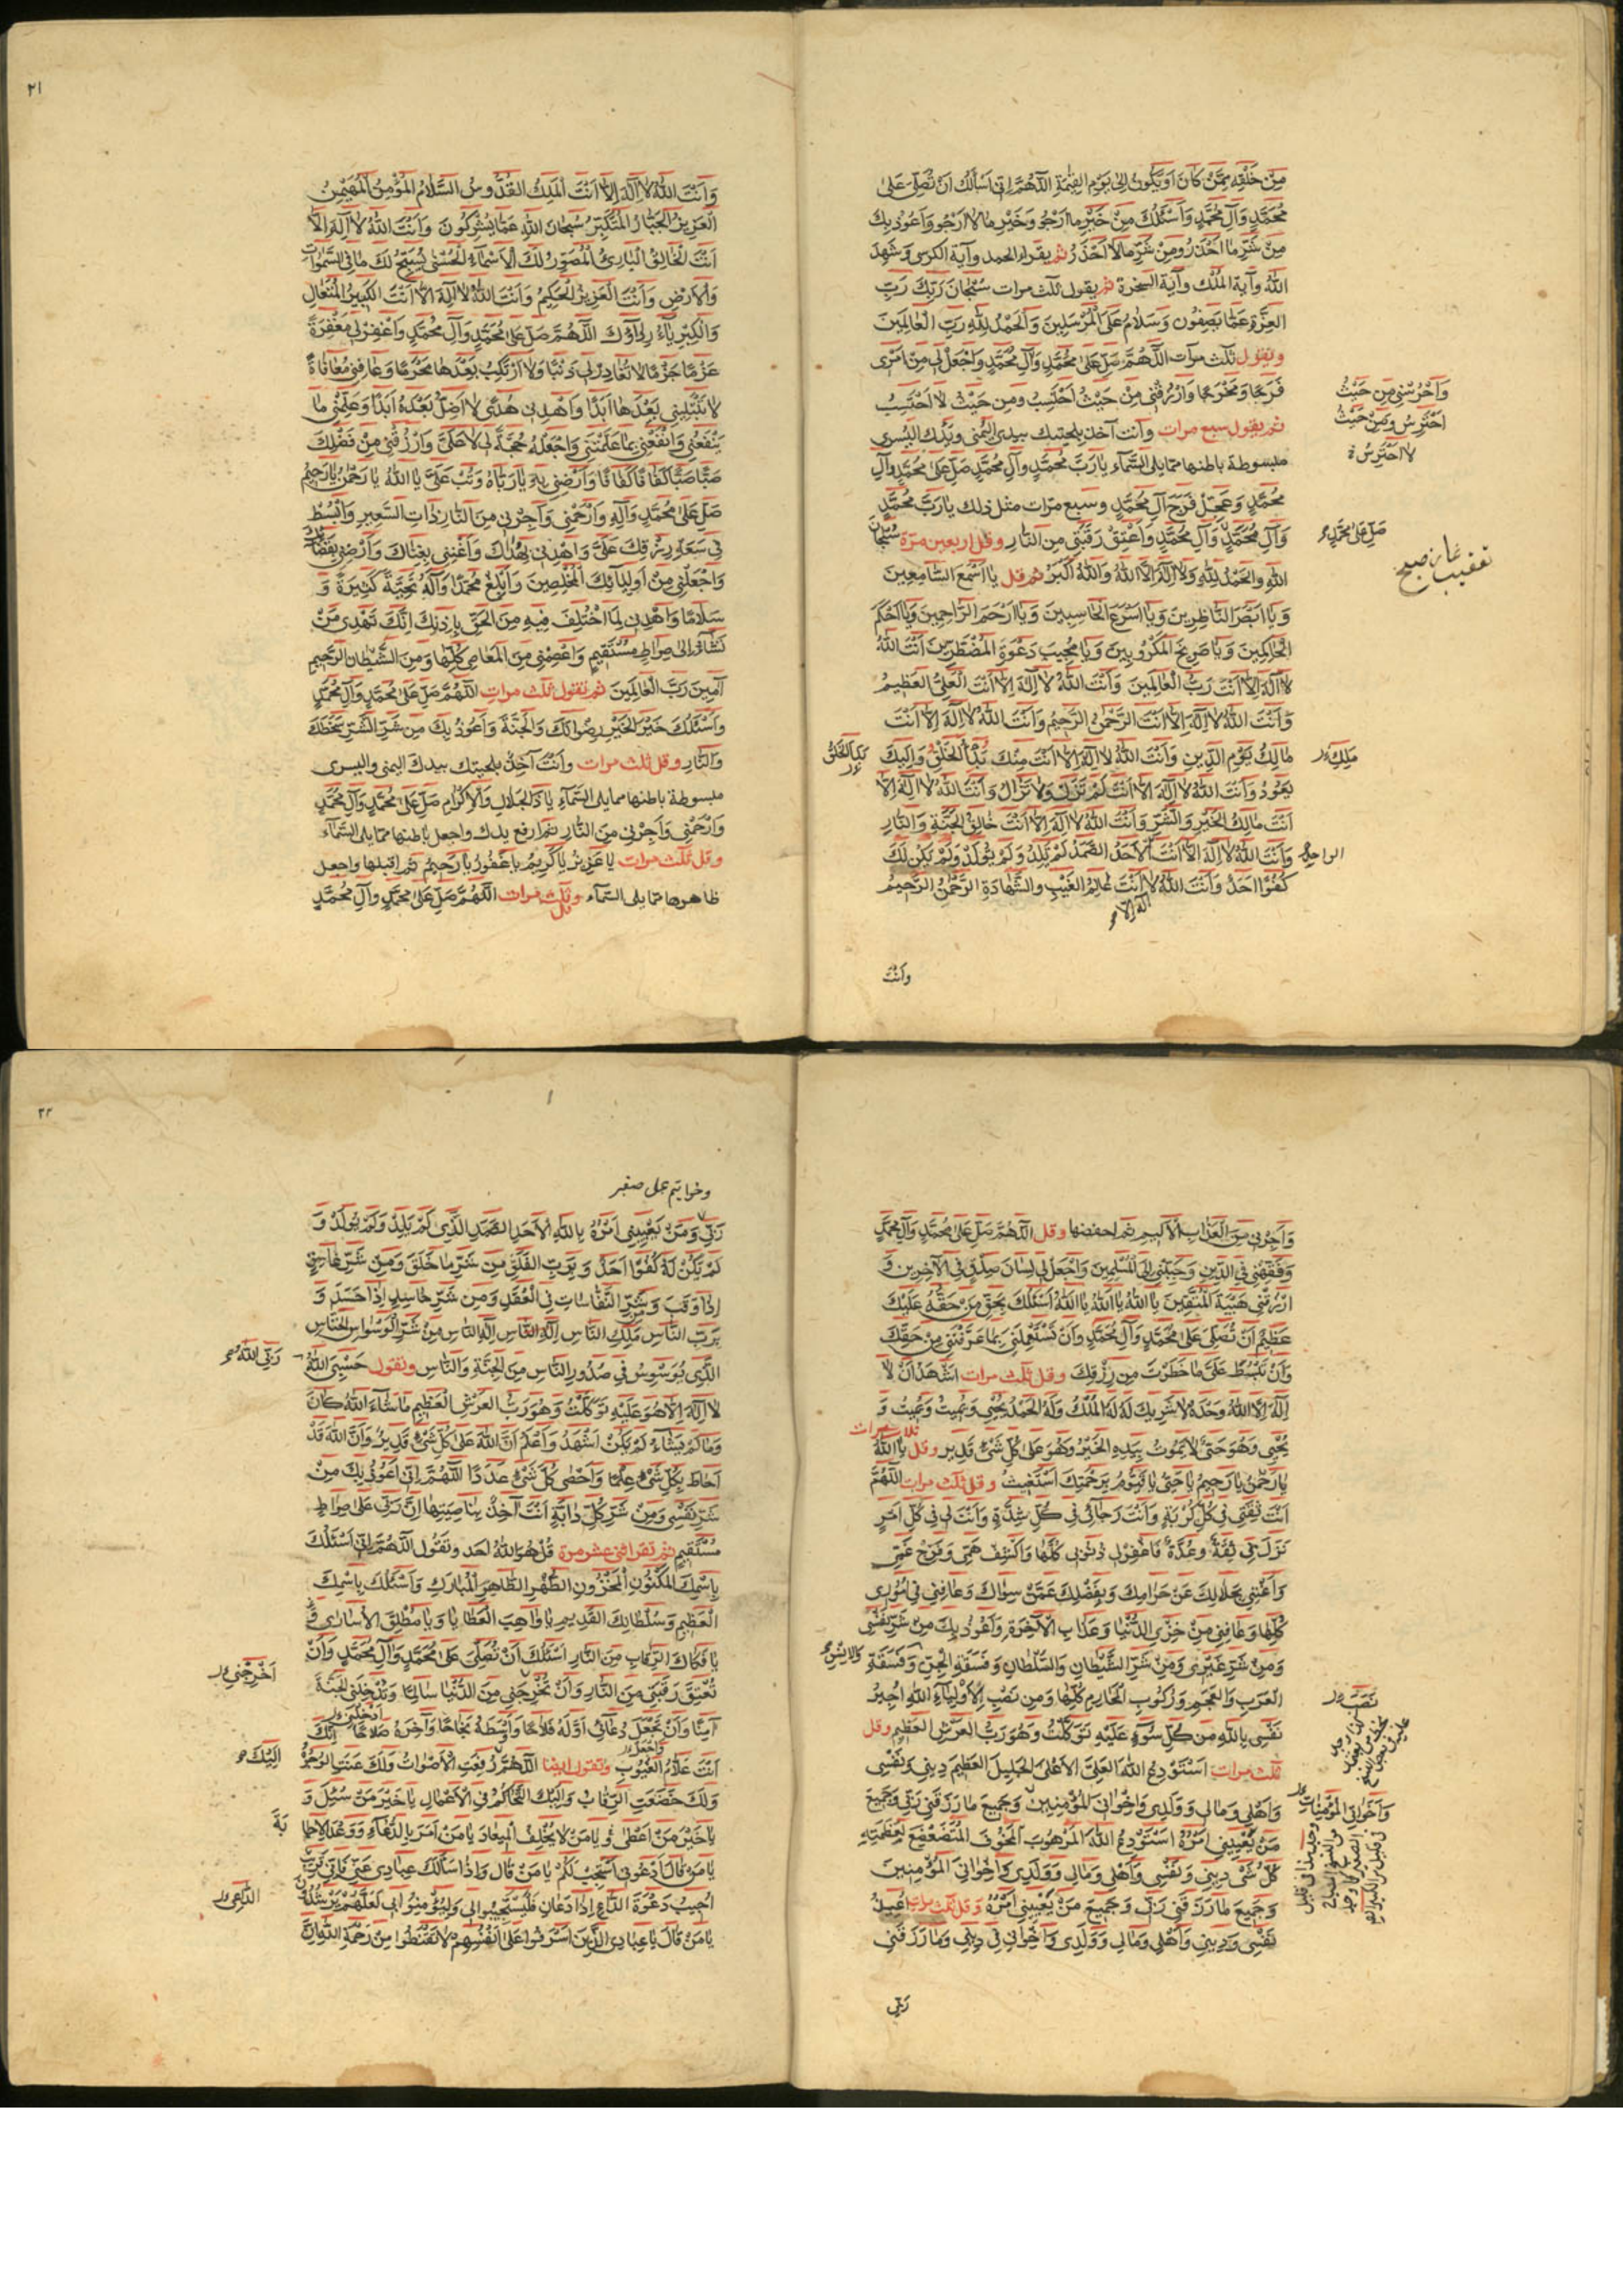 مِنْ خَلْقِهِ مِمَّنْ كَانَ اَوْ يَكُونُ اِلٰى يَوْمِ الْقِيٰمَةِ اَللّٰهُمَّ اِنّى اَسْأَلُكَ اَنْ تُصَلِّىَ عَلىٰ
مُحَمَّدٍ وَآلِ مُحَمَّدٍ وَاَسْئَلُكَ مِنْ خَيْرِ ما اَرْجُو وَخَيْرِ ما لا اَرْجُو وَاَعُوذُ بِكَ
مِنْ شَرِّ ما اَحْذَرُ وَمِنْ شَرِّ ما لا اَحْذَرُ ثم يقراء الحمد وآية الكرسى وَشَهِدَ
اللهُ وآية المُلْك وآية السخرة ثم يقول ثلث مرات سُبْحانَ رَبِّكَ رَبِّ
العِزَّةِ عَمّا يَصِفُون وَسَلامٌ عَلَى المُرْسَلِينَ وَالْحَمْدُ لِلّٰهِ رَبِّ الْعالَمِينَ
وتقول ثلث مرآت اَللّٰهُمَّ صَلِّ عَلىٰ مُحَمَّدٍ وَآلِ مُحَمَّدٍ وَاجْعَلْ لِى مِنْ اَمْرِى
فَرَجًا وَمَخْرَجًا وَارْزُقْنِى مِنْ حَيْثُ اَحْتَسِبُ ومِن حَيْثُ لا اَحْتَسِبُ
وَاحْرُسْنِى مِن حَيْثُ
اَحْتَرِسُ وَمِنْ حَيْثُ
لا اَحْتَرِسُ
ثم يقول سبع مرات وأنت آخذ بلحيتك بيدك اليُمْنى ويَدُك اليُسرى
مبسوطة باطنها مما يلى السَّمآء يا رَبَّ مُحَمَّدٍ وَآلِ مُحَمَّدٍ صَلِّ عَلىٰ مُحَمَّدٍ وَآلِ
مُحَمَّدٍ وَعَجِّلْ فَرَجَ آلِ مُحَمَّدٍ وسبع مرّات مثل ذلك يا رَبَّ مُحَمَّدٍ
وَآلِ مُحَمَّدٍ وَآلِ مُحَمَّدٍ وَاَعْتِقْ رَقَبَتِى مِن النّارِ وقل اربعين مرّة سُبْحانَ
صَلِّ عَلىٰ مُحَمَّدٍ
تعقيب نماز صبح
اللهِ وَالحَمْدُ لِلّٰهِ وَلا اِلٰهَ اِلَّا اللهُ وَاللهُ اَكْبَرُ ثم قل يا اَسْمَعَ السّامِعِينَ
وَيا اَبْصَرَ النّاظِرِينَ وَيا اَسْرَعَ الحاسِبِينَ وَيا اَرْحَمَ الرّاحِمِينَ وَيا اَحْكَمَ
الحاكِمِينَ وَيا صَرِيخَ المَكْرُوبِينَ وَيا مُجِيبَ دَعْوَةِ المُضْطَرِّينَ اَنْتَ اللهُ
لا اِلٰهَ اِلّا اَنْتَ رَبُّ الْعالَمِينَ وَاَنْتَ اللهُ لا اِلٰهَ اِلّا اَنْتَ الْعَلِىُّ العَظِيمُ
وَاَنْتَ اللهُ لا اِلٰهَ اِلّا اَنْتَ الرَّحْمٰنُ الرَّحِيمُ وَاَنْتَ اللهُ لا اِلٰهَ اِلّا اَنْتَ
مالِكُ يَوْمِ الدِّينِ وَاَنْتَ اللهُ لا اِلٰهَ اِلّا اَنْتَ مِنْكَ بَدْأُ الْخَلْقِ وَاِلَيْكَ
مَلِكِ
بَدَأَ الْخَلْقُ
يَعُودُ وَاَنْتَ اللهُ لا اِلٰهَ اِلّا اَنْتَ لَمْ تَزَلْ وَلا تَزالُ وَاَنْتَ اللهُ لا اِلٰهَ اِلّا
اَنْتَ مالِكُ الخَيْرِ وَالشَّرِّ وَاَنْتَ اللهُ لا اِلٰهَ اِلّا اَنْتَ خالِقُ الجَنَّةِ وَالنّارِ
وَاَنْتَ اللهُ لا اِلٰهَ اِلّا اَنْتَ اَلْاَحَدُ الصَّمَدُ لَمْ تَلِدْ وَلَمْ يُولَدْ وَلَمْ يَكُنْ لَكَ
الواحِدُ
كُفُوًا اَحَدٌ وَاَنْتَ اللهُ لا اَنْتَ عالِمُ الغَيْبِ وَالشَّهادَةِ الرَّحْمٰنُ الرَّحِيمُ
اِلٰهَ اِلّا
وَاَنْتَ
٢١
وَاَنْتَ اللهُ لا اِلٰهَ اِلّا اَنْتَ الْمَلِكُ القُدُّوسُ السَّلامُ المُؤْمِنُ المُهَيْمِنُ
العَزِيزُ الجَبّارُ المُتَكَبِّرُ سُبْحانَ اللهِ عَمّا يُشْرِكُونَ وَاَنْتَ اللهُ لا اِلٰهَ اِلّا
اَنْتَ الْخالِقُ الْبارِئُ الْمُصَوِّرُ لَكَ الْاَسْمآءُ الْحُسْنىٰ يُسَبِّحُ لَكَ ما فِى السَّمٰواتِ
وَالْاَرْضِ وَاَنْتَ الْعَزِيزُ الْحَكِيمُ وَاَنْتَ اللهُ لا اِلٰهَ اِلّا اَنْتَ الكَبِيرُ المُتَعالِ
وَالْكِبْرِيآءُ رِداؤُكَ اَللّٰهُمَّ صَلِّ عَلىٰ مُحَمَّدٍ وَآلِ مُحَمَّدٍ وَاغْفِرْ لِى مَغْفِرَةً
عَزْمًا جَزْمًا لا تُغادِرُ لِى ذَنْبًا وَلا اَرْتَكِبُ بَعْدَها مُحَرَّمًا وَعافِنِى مُعافاةً
لا تَبْتَلِينِى بَعْدَها اَبَدًا وَاهْدِنِى هُدًى لا اَضِلُّ بَعْدَهُ اَبَدًا وَعَلِّمْنِى ما
يَنْفَعُنِى وَانْفَعْنِى بِما عَلَّمْتَنِى وَاجْعَلْهُ حُجَّةً لِى لا عَلَىَّ وَارْزُقْنِى مِنْ فَضْلِكَ
صَبًّا صَبًّا كَفافًا كَفافًا وَاَرْضِنِى بِهِ يا رَبّاهُ وَتُبْ عَلَىَّ يا اللهُ يا رَحْمٰنُ يا رَحِيمُ
صَلِّ عَلىٰ مُحَمَّدٍ وَآلِهِ وَارْحَمْنِى وَاَجِرْنِى مِنَ النّارِ ذاتِ السَّعِيرِ وَابْسُطْ
فِى سَعَةِ رِزْقِكَ عَلَىَّ وَاهْدِنِى بِهُداكَ وَاَغْنِنِى بِغِناكَ وَاَرْضِنِى بِقَضائِكَ
وَاجْعَلْنِى مِنْ اَوْلِيآئِكَ الْمُخْلَصِينَ وَاَبْلِغْ مُحَمَّدًا وَآلَهُ تَحِيَّةً كَثِيرَةً وَ
سَلامًا وَاهْدِنِى لِمَا اخْتُلِفَ فِيهِ مِنَ الْحَقِّ بِاِذْنِكَ اِنَّكَ تَهْدِى مَنْ
تَشآءُ اِلىٰ صِراطٍ مُسْتَقِيمٍ وَاعْصِمْنِى مِنَ المَعاصِى كُلِّها وَمِنَ الشَّيْطانِ الرَّجِيمِ
آمِينَ رَبَّ الْعالَمِينَ ثم تقول ثلث مرات اَللّٰهُمَّ صَلِّ عَلىٰ مُحَمَّدٍ وَآلِ مُحَمَّدٍ
وَاَسْئَلُكَ خَيْرَ الخَيْرِ رِضْوانَكَ وَالجَنَّةَ وَاَعُوذُ بِكَ مِن شَرِّ الشَّرِّ سَخَطِكَ
وَالنّارِ وقل ثلث مرات وأنت آخذ بلحيتك بيدك اليمنى واليسرى
مبسوطة باطنها مما يلى السَّمآء يا ذَا الجَلالِ وَالْاِكْرامِ صَلِّ عَلىٰ مُحَمَّدٍ وَآلِ مُحَمَّدٍ
وَارْحَمْنِى وَاَجِرْنِى مِنَ النّارِ ثم ارفع يدك واجعل باطنها مما يلى السَّمآء
وقل ثلث مرات يا عَزِيزُ يا كَرِيمُ يا غَفُورُ يا رَحِيمُ ثم اقبلها واجعل
ظاهرها مما يلى السَّمآء وقل ثلث مرات اَللّٰهُمَّ صَلِّ عَلىٰ مُحَمَّدٍ وَآلِ مُحَمَّدٍ
وَاَجِرْنِى مِنَ العَذابِ الْاَلِيمِ ثم اخفضها وقل اَللّٰهُمَّ صَلِّ عَلىٰ مُحَمَّدٍ وَآلِ مُحَمَّدٍ
وَفَقِّهْنِى فِى الدِّينِ وَحَبِّبْنِى اِلَى الْمُسْلِمِينَ وَاجْعَلْ لِى لِسانَ صِدْقٍ فِى الْآخِرِينَ وَ
ارْزُقْنِى هَيْبَةَ الْمُتَّقِينَ يا اَللهُ يا اَللهُ يا اَللهُ اَسْئَلُكَ بِحَقِّ مَنْ حَقُّهُ عَلَيْكَ
عَظِيمٌ اَنْ تُصَلِّىَ عَلىٰ مُحَمَّدٍ وَآلِ مُحَمَّدٍ وَاَنْ تَسْتَعْمِلَنِى بِما عَرَّفْتَنِى مِنْ حَقِّكَ
وَاَنْ تَبْسُطَ عَلَىَّ ما حَظَرْتَ مِن رِزْقِكَ وقل ثلث مرات اَشْهَدُ اَنْ لا
اِلٰهَ اِلَّا اللهُ وَحْدَهُ لا شَرِيكَ لَهُ لَهُ المُلْكُ وَلَهُ الحَمْدُ يُحْيِى وَيُمِيتُ وَيُمِيتُ وَ
يُحْيِى وَهُوَ حَىٌّ لا يَمُوتُ بِيَدِهِ الخَيْرُ وَهُوَ عَلىٰ كُلِّ شَىْءٍ قَدِيرٌ وقل يا اَللهُ
ثلاث مرات
يا رَحْمٰنُ يا رَحِيمُ يا حَىُّ يا قَيُّومُ بِرَحْمَتِكَ اَسْتَغِيثُ وقل ثلث مرات اَللّٰهُمَّ
اَنْتَ ثِقَتِى فِى كُلِّ كُرْبَةٍ وَاَنْتَ رَجائِى فِى كُلِّ شِدَّةٍ وَاَنْتَ لِى فِى كُلِّ اَمْرٍ
نَزَلَ بِى ثِقَةٌ وَعُدَّةٌ فَاغْفِرْ لِى ذُنُوبِى كُلَّها وَاكْشِفْ هَمِّى وَفَرِّجْ غَمِّى
وَاَغْنِنِى بِحَلالِكَ عَنْ حَرامِكَ وَبِفَضْلِكَ عَمَّنْ سِواكَ وَعافِنِى فِى اُمُورِى
كُلِّها وَعافِنِى مِنْ خِزْىِ الدُّنْيا وَعَذابِ الْآخِرَةِ وَاَعُوذُ بِكَ مِنْ شَرِّ نَفْسِى
وَمِنْ شَرِّ غَيْرِى وَمِنْ شَرِّ الشَّيْطانِ وَالسُّلْطانِ وَفَسَقَةِ الجِنِّ وَفَسَقَةِ
وَالْاِنْسِ
العَرَبِ وَالعَجَمِ وَرُكُوبِ الْمَحارِمِ كُلِّها وَمِن نَصْبِ لِاَوْلِيآءِ اللهِ اُجِيرُ
نَصَبَ
نَفْسِى بِاللهِ مِن كُلِّ سُوءٍ عَلَيْهِ تَوَكَّلْتُ وَهُوَ رَبُّ العَرْشِ العَظِيمِ وقل
ثلث مرات اَسْتَوْدِعُ اللهَ العَلِىَّ الْاَعْلَى الجَلِيلَ العَظِيمَ دِينِى وَنَفْسِى
وَاَهْلِى وَمالِى وَوَلَدِى وَاِخْوانِىَ المُؤْمِنِينَ وَجَمِيعَ ما رَزَقَنِى رَبِّى وَجَمِيعَ
وَاَخَواتِىَ المُؤْمِناتِ
مَنْ يَعْنِينِى اَمْرُهُ اَسْتَوْدِعُ اللهَ المَرْهُوبَ المَخُوفَ المُتَضَعْضِعَ لِعَظَمَتِهِ
كُلُّ شَىْءٍ دِينِى وَنَفْسِى وَاَهْلِى وَمالِى وَوَلَدِى وَاِخْوانِىَ المُؤْمِنِينَ
وَجَمِيعَ ما رَزَقَنِى رَبِّى وَجَمِيعَ مَنْ يَعْنِينِى اَمْرُهُ وقل ثلث مرات اُعِيذُ
نَفْسِى وَدِينِى وَاَهْلِى وَمالِى وَوَلَدِى وَاِخْوانِى فِى دِينِى وَما رَزَقَنِى
رَبِّى
٢٢
وخواتيم عملى
رَبِّى وَمَنْ يَعْنِينِى اَمْرُهُ بِاللهِ الْاَحَدِ الصَّمَدِ الَّذِى لَمْ يَلِدْ وَلَمْ يُولَدْ وَ
لَمْ يَكُنْ لَهُ كُفُوًا اَحَدٌ وَبِرَبِّ الفَلَقِ مِنْ شَرِّ ما خَلَقَ وَمِنْ شَرِّ غاسِقٍ
اِذا وَقَبَ وَمِنْ شَرِّ النَّفّاثاتِ فِى الْعُقَدِ وَمِن شَرِّ حاسِدٍ اِذا حَسَدَ وَ
بِرَبِّ النّاسِ مَلِكِ النّاسِ اِلٰهِ النّاسِ مِنْ شَرِّ الوَسْواسِ الخَنّاسِ
الَّذِى يُوَسْوِسُ فِى صُدُورِ النّاسِ مِنَ الجِنَّةِ وَالنّاسِ وتقول حَسْبِىَ اللهُ
رَبِّىَ اللهُ
لا اِلٰهَ اِلّا هُوَ عَلَيْهِ تَوَكَّلْتُ وَهُوَ رَبُّ العَرْشِ العَظِيمِ ما شآءَ اللهُ كانَ
وَما لَمْ يَشَاْءْ لَمْ يَكُنْ اَشْهَدُ وَاَعْلَمُ اَنَّ اللهَ عَلىٰ كُلِّ شَىْءٍ قَدِيرٌ وَاَنَّ اللهَ قَدْ
اَحاطَ بِكُلِّ شَىْءٍ عِلْمًا وَاَحْصىٰ كُلَّ شَىْءٍ عَدَدًا اَللّٰهُمَّ اِنِّى اَعُوذُ بِكَ مِنْ
شَرِّ نَفْسِى وَمِنْ شَرِّ كُلِّ دابَّةٍ اَنْتَ آخِذٌ بِناصِيَتِها اِنَّ رَبِّى عَلىٰ صِراطٍ
مُسْتَقِيمٍ ثم تقرا اثنى عشر مرة قُلْ هُوَ اللهُ اَحَد وتقول اَللّٰهُمَّ اِنِّى اَسْئَلُكَ
بِاسْمِكَ المَكْنُونِ المَخْزُونِ الطُّهْرِ الطّاهِرِ المُبارَكِ وَاَسْئَلُكَ بِاسْمِكَ
العَظِيمِ وَسُلْطانِكَ القَدِيمِ يا واهِبَ الْعَطايا وَيا مُطْلِقَ الْاُسارىٰ وَ
يا فَكّاكَ الرِّقابِ مِنَ النّارِ اَسْئَلُكَ اَنْ تُصَلِّىَ عَلىٰ مُحَمَّدٍ وَآلِ مُحَمَّدٍ وَاَنْ
تُعْتِقَ رَقَبَتِى مِنَ النّارِ وَاَنْ تُخْرِجَنِى مِنَ الدُّنْيا سالِمًا وَتُدْخِلَنِى الجَنَّةَ
اَخْرِجْنِى
اَدْخِلْنِى
آمِنًا وَاَنْ تَجْعَلَ دُعائِى اَوَّلَهُ فَلاحًا وَاَوْسَطَهُ نَجاحًا وَآخِرَهُ صَلاحًا اِنَّكَ
وَاجْعَلْ
اَنْتَ عَلّامُ الغُيُوبِ وتقول ايضا اَللّٰهُمَّ اِلَيْكَ رُفِعَتِ الْاَصْواتُ وَلَكَ عَنَتِ الوُجُوهُ
اِلَيْكَ
وَلَكَ خَضَعَتِ الرِّقابُ وَاِلَيْكَ التَّحاكُمُ فِى الْاَعْمالِ يا خَيْرَ مَنْ سُئِلَ وَ
يا خَيْرَ مَنْ اَعْطىٰ يا مَنْ لا يُخْلِفُ الْمِيعادَ يا مَنْ اَمَرَ بِالدُّعآءِ وَوَعَدَ الْاِجا
بَةَ
يا مَنْ قالَ اُدْعُونِى اَسْتَجِبْ لَكُمْ يا مَنْ قالَ وَاِذا سَأَلَكَ عِبادِى عَنِّى فَاِنِّى قَرِيبٌ
اُجِيبُ دَعْوَةَ الدّاعِ اِذا دَعانِ فَلْيَسْتَجِيبُوا لِى وَلْيُؤْمِنُوا بِى لَعَلَّهُمْ يَرْشُدُونَ
الدّاعِى
يا مَنْ قالَ يا عِبادِىَ الَّذِينَ اَسْرَفُوا عَلىٰ اَنْفُسِهِمْ لا تَقْنَطُوا مِنْ رَحْمَةِ اللهِ اِنَّ